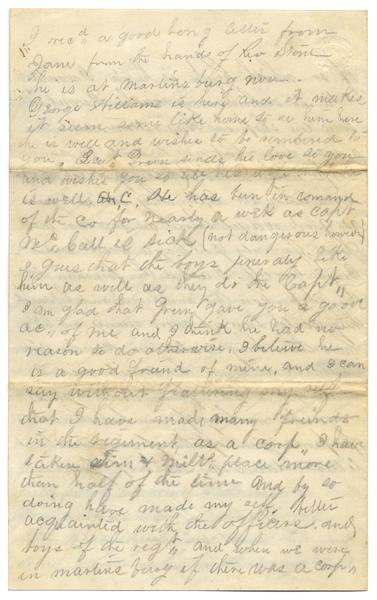 I rec'd a good long letter from
Jane from the hands of Rev Stone
he is at Martinsburg now.
George William is here and it makes
it seem some like home to see him here
he is well and wishes to be remembered to
you. Lieut sends his love to you
and wishes you to
is well. He has been in comand
of the co for nearly a week as Capt
Mc Call is sick (not dangerous however)
I gues that the boys generaly like
him as well as they do the Capt"
I am glad that Green gave you a good
ac" of me and I think he had no
reason to do otherwise. I believe he
is a good friend of mine, and I can
say without flattering my self
that I have made many friends
in the regiment as a corp" I have
taken & place more
than half of the time and by so
doing have made my self better
acquainted with the officers and
boys of the regt" and when we were
in martinsburg if there was a corp"